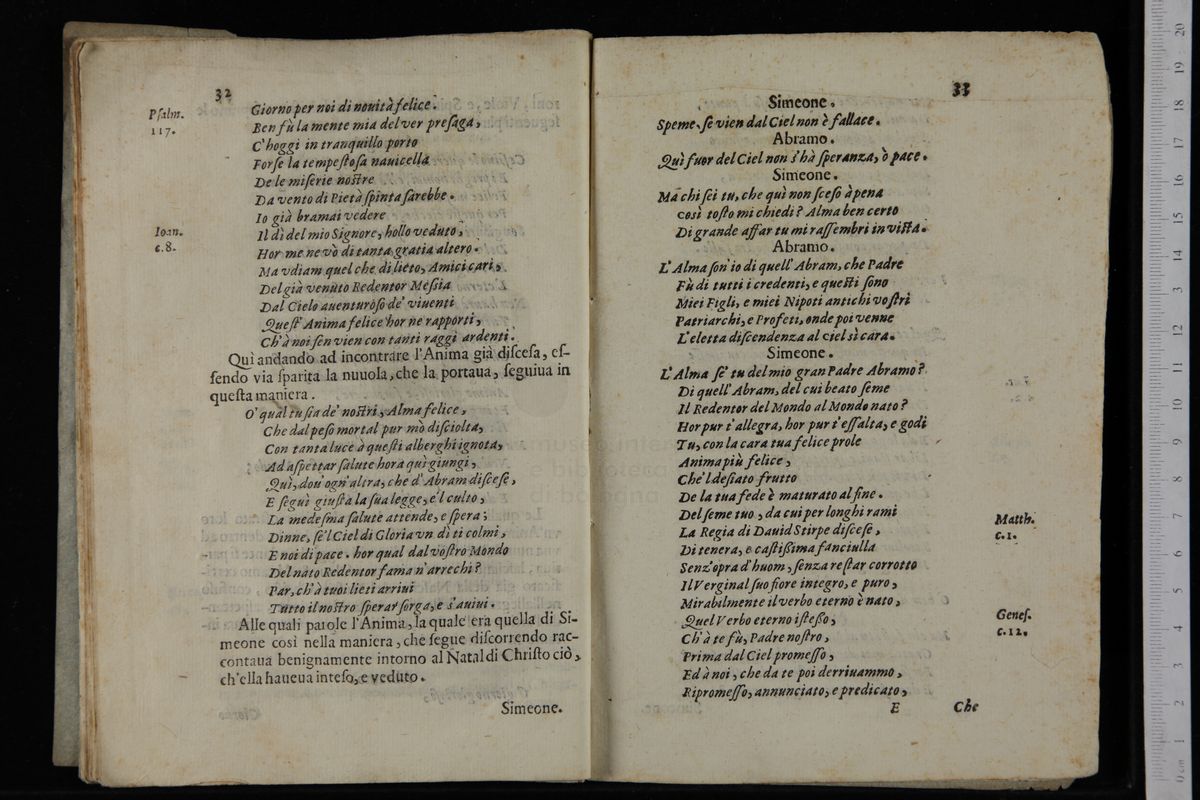 32
Psalm.
117.
Giorno per noi di nouità felice.
Ben fù la mente mia del ver presaga,
C'hoggi in tranquillo porto
Forse la tempestosa nauicella
De le miserie nostre
Da vento di Pietà spinta sarebbe.
Io già bramai vedere
Ioan.
c.8.
Il dì del mio Signore, hollo veduto,
Hor me ne vò di tanta gratia altero.
Ma vdiam quel che di lieto, Amici cari,
Del già venuto Redentor Messia
Dal Cielo auenturoso de' viuenti
Quest' Anima felice hor ne rapporti,
Ch'à noi sen vien con tanti raggi ardenti.
Qui andando ad incontrare l'Anima già discesa, es-
sendo via sparita la nuuola, che la portaua, seguiua in
questa maniera.
O' qual tu sia de' nostri, Alma felice,
Che dal peso mortal pur mò disciolta,
Con tanta luce à questi alberghi ignota,
Ad aspettar salute hora quì giungi,
Quì, dou' ogn' altra, che d' Abram discese,
E seguì giusta la sua legge, e'l culto,
La medesma salute attende, e spera;
Dinne, se'l Ciel di Gloria vn dì ti colmi,
E noi di pace. hor qual dal vostro Mondo
Del nato Redentor fama n'arrechi?
Par, ch'à tuoi lieti arriui
Tutto il nostro sperar sorga, e s'auiui.
Alle quali parole l'Anima, la quale era quella di Si-
meone così nella maniera, che segue discorrendo rac-
contaua benignamente intorno al Natal di Christo ciò,
ch'ella haueua inteso, e veduto.
Simeone.
33
Simeone.
Speme, se vien dal Ciel non è fallace.
Abramo.
Quì fuor del Ciel non s'hà speranza, ò pace.
Simeone.
Ma chi sei tu, che quì non sceso à pena
così tosto mi chiedi? Alma ben certo
Di grande affar tu mi rassembri in vista.
Abramo.
L'Alma son' io di quell' Abram, che Padre
Fù di tutti i credenti, e questi sono
Miei Figli, e miei Nipoti antichi vostri
Patriarchi, e Profeti, onde poi venne
L'eletta discendenza al ciel sì cara.
Simeone.
L'Alma se' tu del mio gran Padre Abramo?
Di quell' Abram, del cui beato seme
Il Redentor del Mondo al Mondo nato?
Hor pur t'allegra, hor pur t'essalta, e godi
Tu, con la cara tua felice prole
Anima più felice,
Che'l desiato frutto
De la tua fede è maturato al fine.
Del seme tuo, da cui per longhi rami
La Regia di Dauid Stirpe discese,
Matth.
C.1.
Di tenera, e castissima fanciulla
Senz'opra d'huom, senza restar corrotto
Il Verginal suo fiore integro, e puro,
Mirabilmente il verbo eterno è nato,
Quel Verbo eterno istesso,
Genes.
C.12.
Ch'à te fù, Padre nostro,
Prima dal Ciel promesso,
Ed à noi, che da te poi derriuammo,
Ripromesso, annunciato, e predicato,
E Che